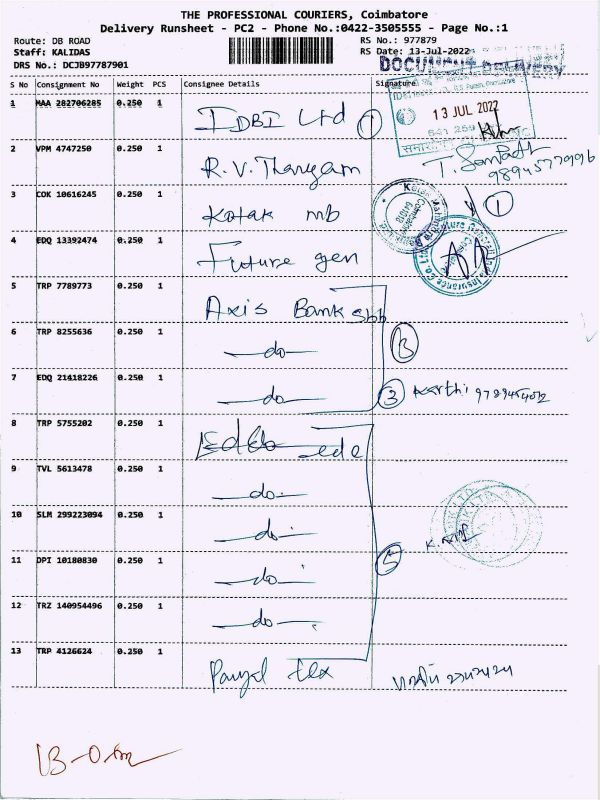 THE PROFESSIONAL COURIERS, Coimbatore
Delivery Runsheet - PC2 - Phone No.:0422-3505555 - Page No.:1
Route: DB ROAD
Staff: KALIDAS
DRS No.: DCJB97787901
RS No.: 977879
RS Date: 13-Jul-2022
DOCUMENT DELIVERY
S No Consignment No Weight PCS Consignee Details Signature
13 JUL 2022
1 MAA 282706285 0.250 1 IDBI Ltd 1
2 VPM 4747250 0.250 1 R.V. Thangam T. Sampath
3 COK 10616245 0.250 1 Kotak mb 1
4 EDQ 13392474 0.250 1 Future gen
5 TRP 7789773 0.250 1 Axis Bank sbb
6 TRP 8255636 0.250 1 -do-
7 EDQ 21418226 0.250 1 -do- 3 Karthi
8 TRP 5755202 0.250 1
9 TVL 5613478 0.250 1 -do-
10 SLM 299223094 0.250 1 -do-
11 DPI 10180830 0.250 1 -do- 5
12 TRZ 140954496 0.250 1 -do-
13 TRP 4126624 0.250 1